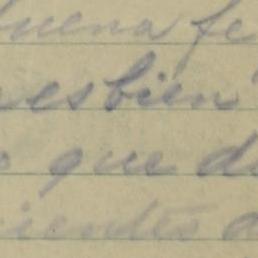 buena fe
es bien
que d
ientes a